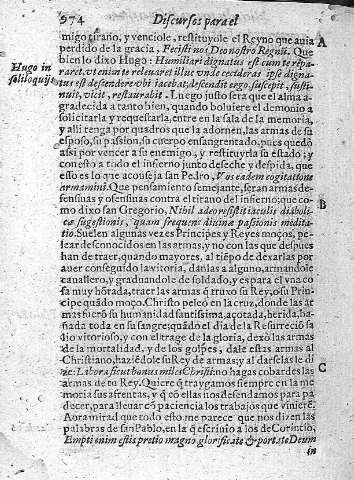 974 Discursos para el
migo tirano, y venciole, restituyole el Reyno que auia A
perdido de la gracia, Fecisti nos Deo nostro Regnũ. Que
bien lo dixo Hugo: Humiliari dignatus est cum te repa-
Hugo in
soliloquijs
raret, vt enim te releuaret illuc vnde cecideras ipse digna-
tus est descendere vbi iacebat, descendit ergo, suscepit, susti-
nuit, vicit, restaurabit. Luego justo sera que el alma a-
gradecida a tanto bien, quando boluiere el demonio a
solicitarla y requestarla, entre en la sala de la memoria,
y alli tenga por quadros que la adornen, las armas de su
esposo, su passion, su cuerpo ensangrentado, pues quedò
assi por vencer a su enemigo, y restituyrla su estado; y
con esto a todo el infierno junto deseche y despida, que
esso es lo que aconseja san Pedro, Vos eadem cogitatione
armamini. Que pensamiento semejante, seran armas de-
fensiuas y ofensiuas contra el tirano del infierno; que co B
mo dixo san Gregorio, Nihil adeo resistit iaculis diaboli-
cæ sugestionis, quam frequens diuinæ passionis medita-
tio. Suelen algunas vezes Principes y Reyes moços, pe-
lear desconocidos en las armas, y no con las que despues
han de traer, quando mayores, al tiẽpo de dexarlas por
auer conseguido la vitoria, danlas a alguno, armandole
cauallero, y graduandole de soldado, y es para el vna co
sa muy hõrada, traer las armas q̃ truxo su Rey, o su Prin
cipe quãdo moço. Christo peleò en la cruz, donde las ar
mas fuerõ su humanidad santissima, açotada, herida, ba-
ñada toda en su sangre; quãdo el dia de la Resurreciõ sa
lio vitorioso, y con el trage de la gloria, dexò las armas
de la mortalidad, y de los golpes, dale estas armas al
Christiano, haziẽdole su Rey de armas y al darselas le di C
ze: Labora sicut bonus miles Christi no hagas cobardes las
armas de tu Rey. Quiere q̃ traygamos siempre en la me
moria sus afrentas, y q̃ cõ ellas nos defendamos para pa
decer, para lleuar cõ paciencia los trabajos que viniere.
Aora mirad que todo esto me parece que nos dizen las
palabras de san Pablo, en la q̃ escriuio a los de Corintio,
Empti enim estis pretio magno, glorificate & portate Deum
in